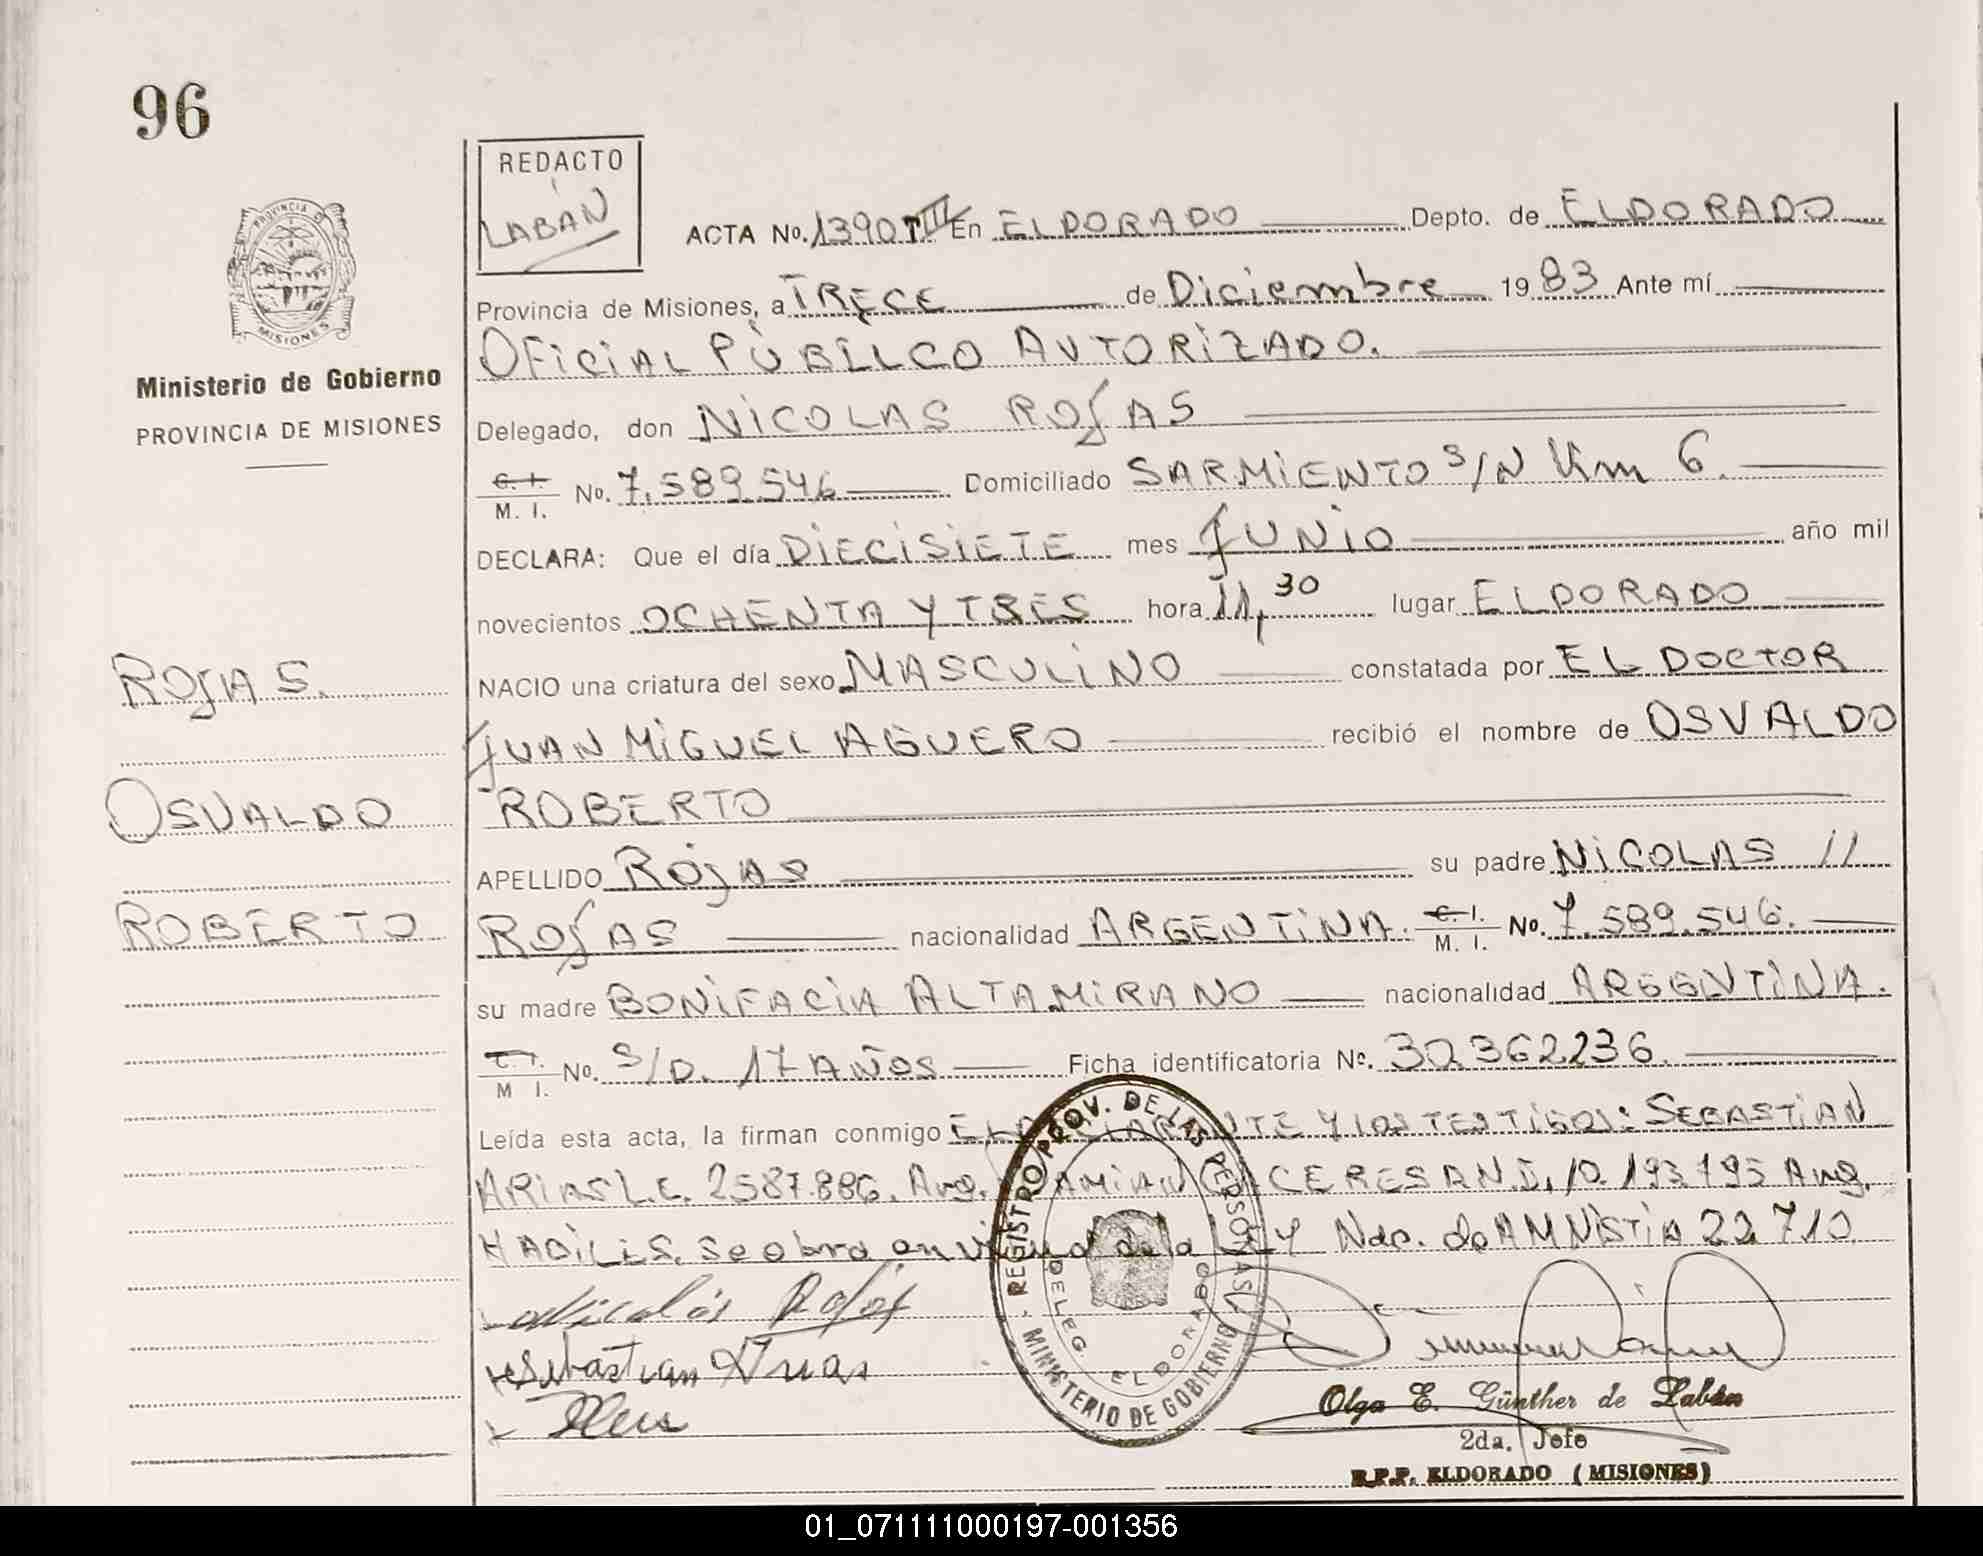 96
REDACTO
LABÁN
PROVINCIA DE
MISIONES
Ministerio de Gobierno
PROVINCIA DE MISIONES
ACTA No. 1390 TIII En ELDORADO Depto. de ELDORADO
Provincia de Misiones, a TRECE de Diciembre 1983 Ante mí
OFICIAL PÙBILCO AUTORIZADO.
Delegado, don NICOLAS ROJAS
C. I.
M. I. No. 7.589.546 Domiciliado SARMIENTO S/N Km 6.
DECLARA: Que el día DIECISIETE mes JUNIO año mil
novecientos OCHENTA Y TRES hora 11,30 lugar ELDORADO
NACIO una criatura del sexo MASCULINO constatada por EL DOCTOR
JUAN MIGUEL AGUERO recibió el nombre de OSVALDO
ROBERTO
APELLIDO ROJAS su padre NICOLAS //
ROJAS nacionalidad ARGENTINA. C. I. M. I. No. 7.589.546.
su madre BONIFACIA ALTAMIRANO nacionalidad ARGENTINA.
C. I.
M I. No. S/D. 17 AÑOS Ficha identificatoria No. 30362236.
Leída esta acta, la firman conmigo EL DECLARANTE Y LOS TESTIGOS: SEBASTIAN
ARIAS L.E. 2587.886. Arg. DAMIAN CACERES D.N.I. 10.193195 Arg.
HABILES. Se obra en virtud de la LEY Nac. de AMNISTIA 22.710
ROJAS.
OSVALDO
ROBERTO
Nicolás Rojas
Sebastian Arias
REGISTRO PROV. DE LAS PERSONAS
MINISTERIO DE GOBIERNO
DELEG. ELDORADO
Olga E. Günther de Labán
2da. Jefe
R.P.P. ELDORADO (MISIONES)
01_071111000197-001356